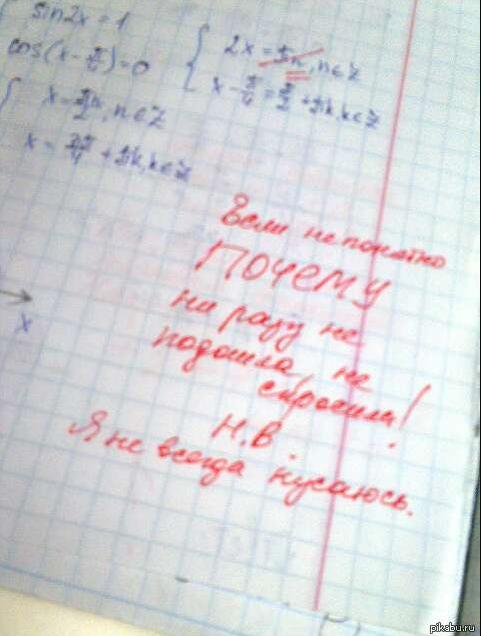 sin2x = 1
cos(x - π/4) = 0
2x = πn, n∈Z
x - π/4 = π/2 + πk, k∈Z
x = πn/2, n∈Z
x = 3π/4 + πk, k∈Z
x
Если непонятно
ПОЧЕМУ
ни разу не
подошла, не
спросила!
Н.В
Я не всегда кусаюсь.
pikabu.ru